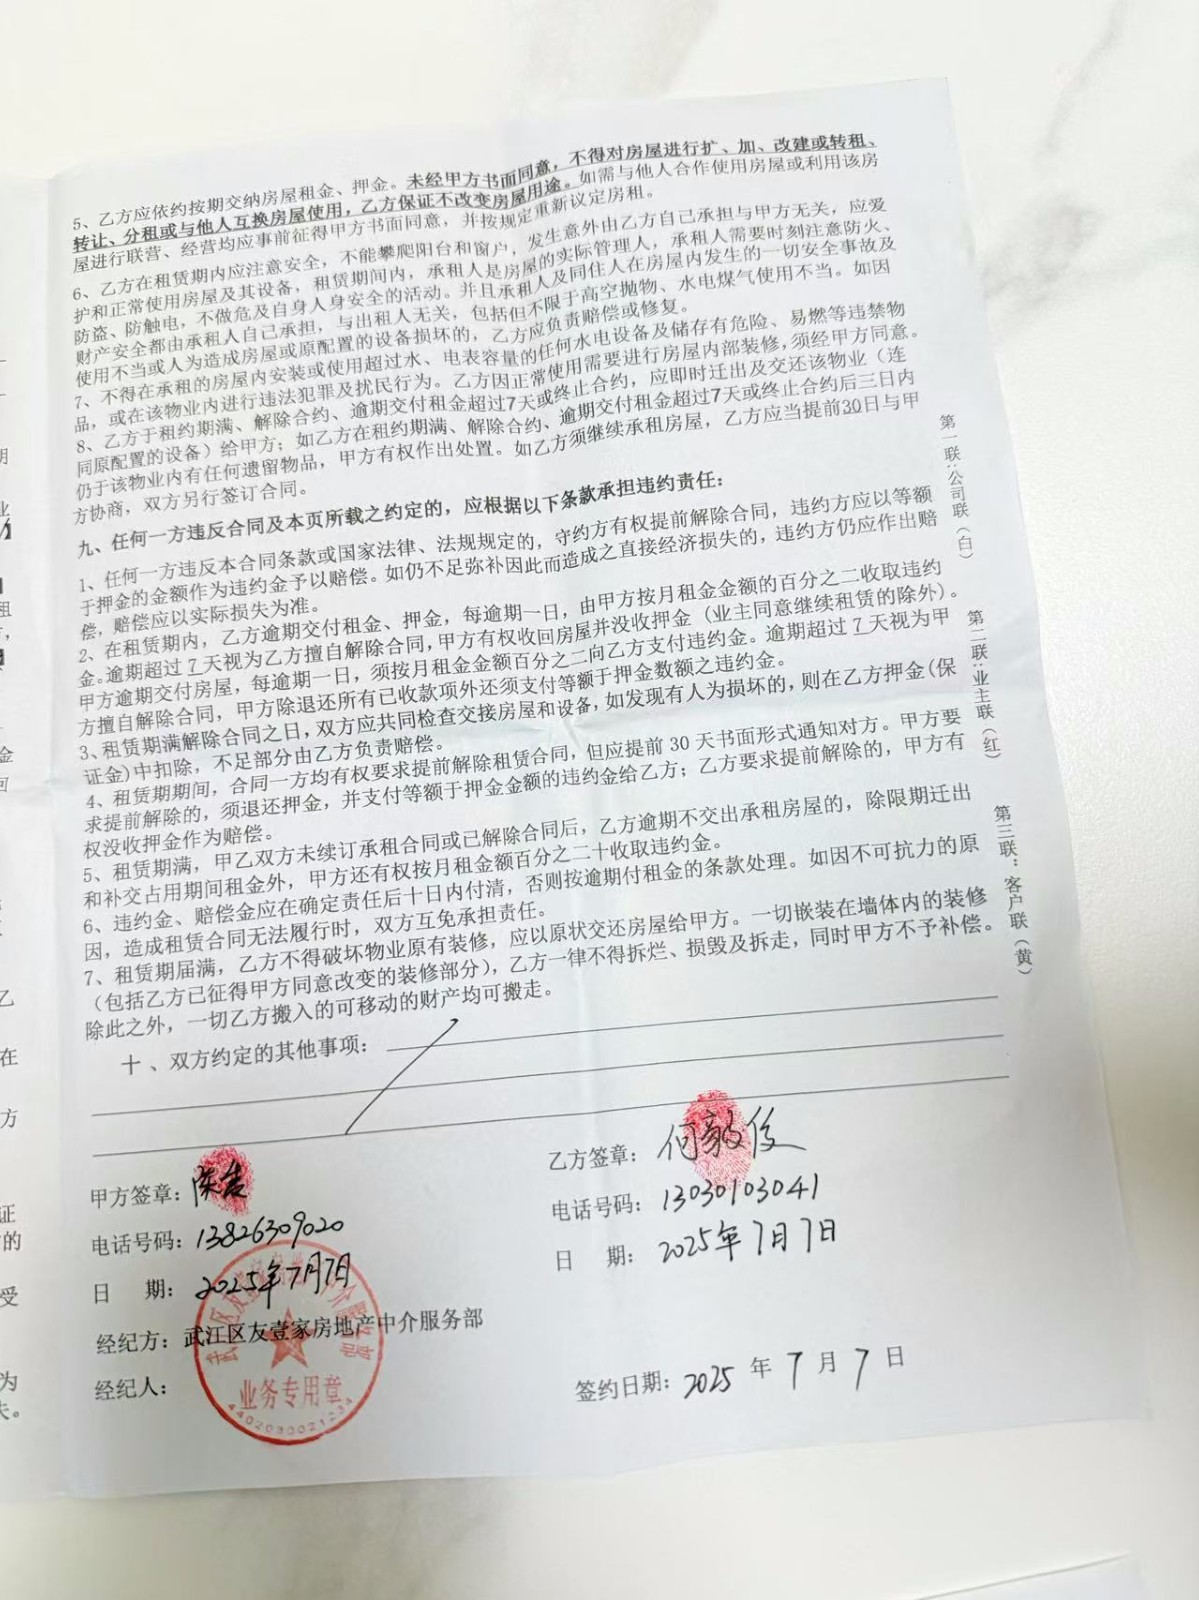 5、乙方应依约按期交纳房屋租金、押金。未经甲方书面同意，不得对房屋进行扩、加、改建或转租、
转让、分租或与他人互换房屋使用，乙方保证不改变房屋用途。如需与他人合作使用房屋或利用该房
屋进行联营、经营均应事前征得甲方书面同意，并按规定重新议定房租。
6、乙方在租赁期内应注意安全，不能攀爬阳台和窗户，发生意外由乙方自己承担与甲方无关，应爱
护和正常使用房屋及其设备，租赁期间内，承租人是房屋的实际管理人，承租人需要时刻注意防火、
防盗、防触电，不做危及自身人身安全的活动。并且承租人及同住人在房屋内发生的一切安全事故及
财产安全都由承租人自己承担，与出租人无关，包括但不限于高空抛物、水电煤气使用不当。如因
使用不当或人为造成房屋或原配置的设备损坏的，乙方应负责赔偿或修复。
7、不得在承租的房屋内安装或使用超过水、电表容量的任何水电设备及储存有危险、易燃等违禁物
品，或在该物业内进行违法犯罪及扰民行为。乙方因正常使用需要进行房屋内部装修，须经甲方同意。
8、乙方于租约期满、解除合约、逾期交付租金超过7天或终止合约，应即时迁出及交还该物业（连
同原配置的设备）给甲方；如乙方在租约期满、解除合约、逾期交付租金超过7天或终止合约后三日内
仍于该物业内有任何遗留物品，甲方有权作出处置。如乙方须继续承租房屋，乙方应当提前30日与甲
方协商，双方另行签订合同。
九、任何一方违反合同及本页所载之约定的，应根据以下条款承担违约责任：
1、任何一方违反本合同条款或国家法律、法规规定的，守约方有权提前解除合同，违约方应以等额
于押金的金额作为违约金予以赔偿。如仍不足弥补因此而造成之直接经济损失的，违约方仍应作出赔
偿，赔偿应以实际损失为准。
2、在租赁期内，乙方逾期交付租金、押金，每逾期一日，由甲方按月租金金额的百分之二收取违约
金。逾期超过 7 天视为乙方擅自解除合同，甲方有权收回房屋并没收押金（业主同意继续租赁的除外）。
甲方逾期交付房屋，每逾期一日，须按月租金金额百分之二向乙方支付违约金。逾期超过 7 天视为甲
方擅自解除合同，甲方除退还所有已收款项外还须支付等额于押金数额之违约金。
3、租赁期满解除合同之日，双方应共同检查交接房屋和设备，如发现有人为损坏的，则在乙方押金（保
证金）中扣除，不足部分由乙方负责赔偿。
4、租赁期期间，合同一方均有权要求提前解除租赁合同，但应提前 30 天书面形式通知对方。甲方要
求提前解除的，须退还押金，并支付等额于押金金额的违约金给乙方；乙方要求提前解除的，甲方有
权没收押金作为赔偿。
5、租赁期满，甲乙双方未续订承租合同或已解除合同后，乙方逾期不交出承租房屋的，除限期迁出
和补交占用期间租金外，甲方还有权按月租金额百分之二十收取违约金。
6、违约金、赔偿金应在确定责任后十日内付清，否则按逾期付租金的条款处理。如因不可抗力的原
因，造成租赁合同无法履行时，双方互免承担责任。
7、租赁期届满，乙方不得破坏物业原有装修，应以原状交还房屋给甲方。一切嵌装在墙体内的装修
（包括乙方已征得甲方同意改变的装修部分），乙方一律不得拆烂、损毁及拆走，同时甲方不予补偿。
除此之外，一切乙方搬入的可移动的财产均可搬走。
十、双方约定的其他事项：
第一联：公司联（白）
第二联：业主联（红）
第三联：客户联（黄）
甲方签章：陈吉
电话号码：13826309020
日 期：2025年7月7日
经纪方：武江区友壹家房地产中介服务部
经纪人：
业务专用章
4402030021234
乙方签章：何毅俊
电话号码：13030103041
日 期：2025年7月7日
签约日期：2025 年 7 月 7 日